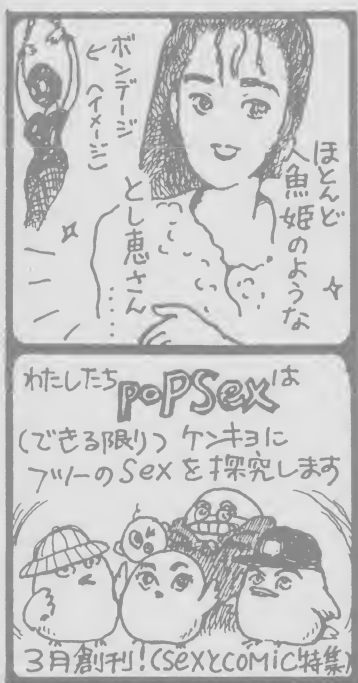 ほとんど
人魚姫のような
とし恵さん……
ボンデージ
(イメージ)
わたしたちpopSexは
(できる限り)ケンキョに
フツーのSexを探究します
3月創刊!(sexとcomic特集)